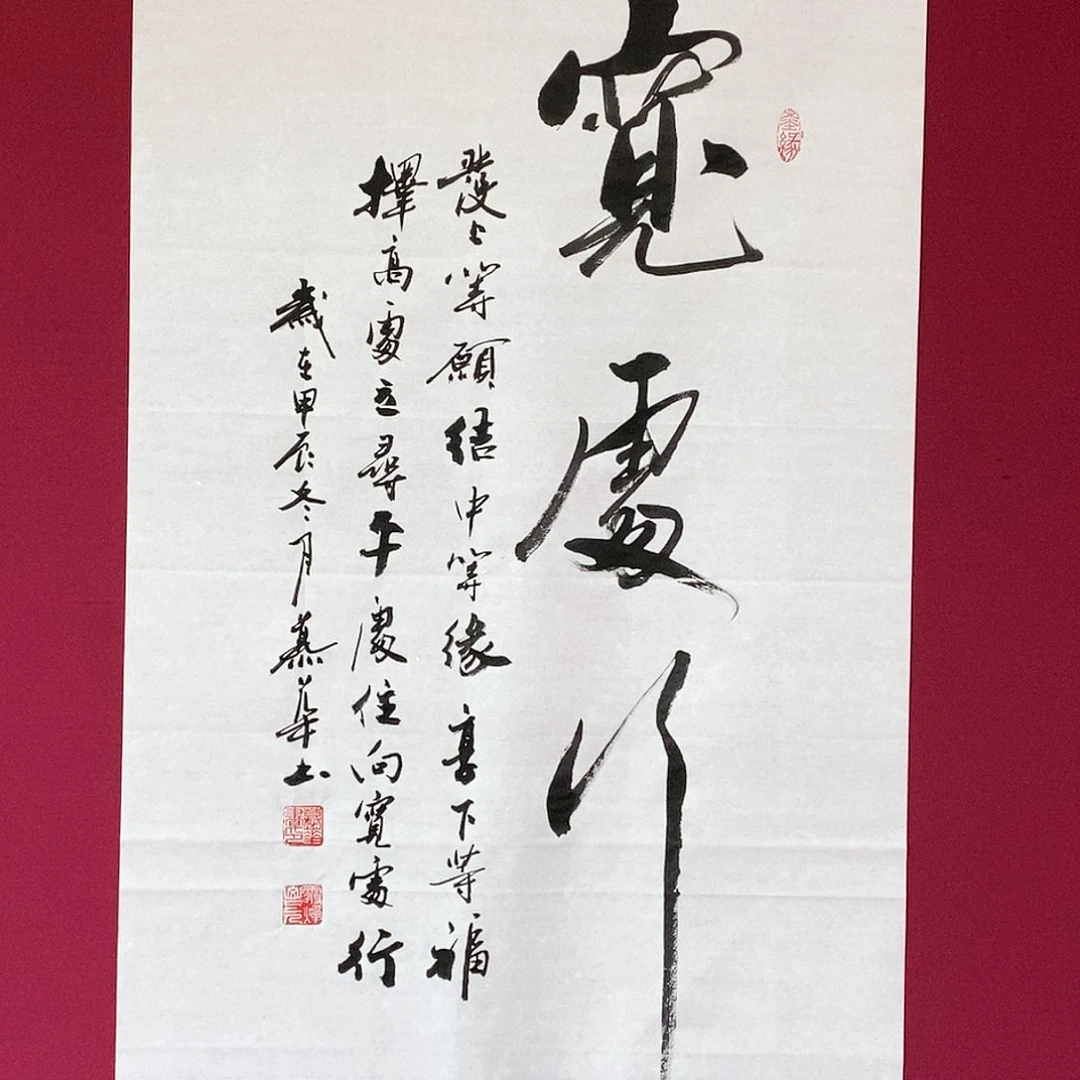 寬處行
墨緣
發上等願結中等緣享下等福
擇高處立尋平處住向寬處行
歲在甲辰冬月慕華书